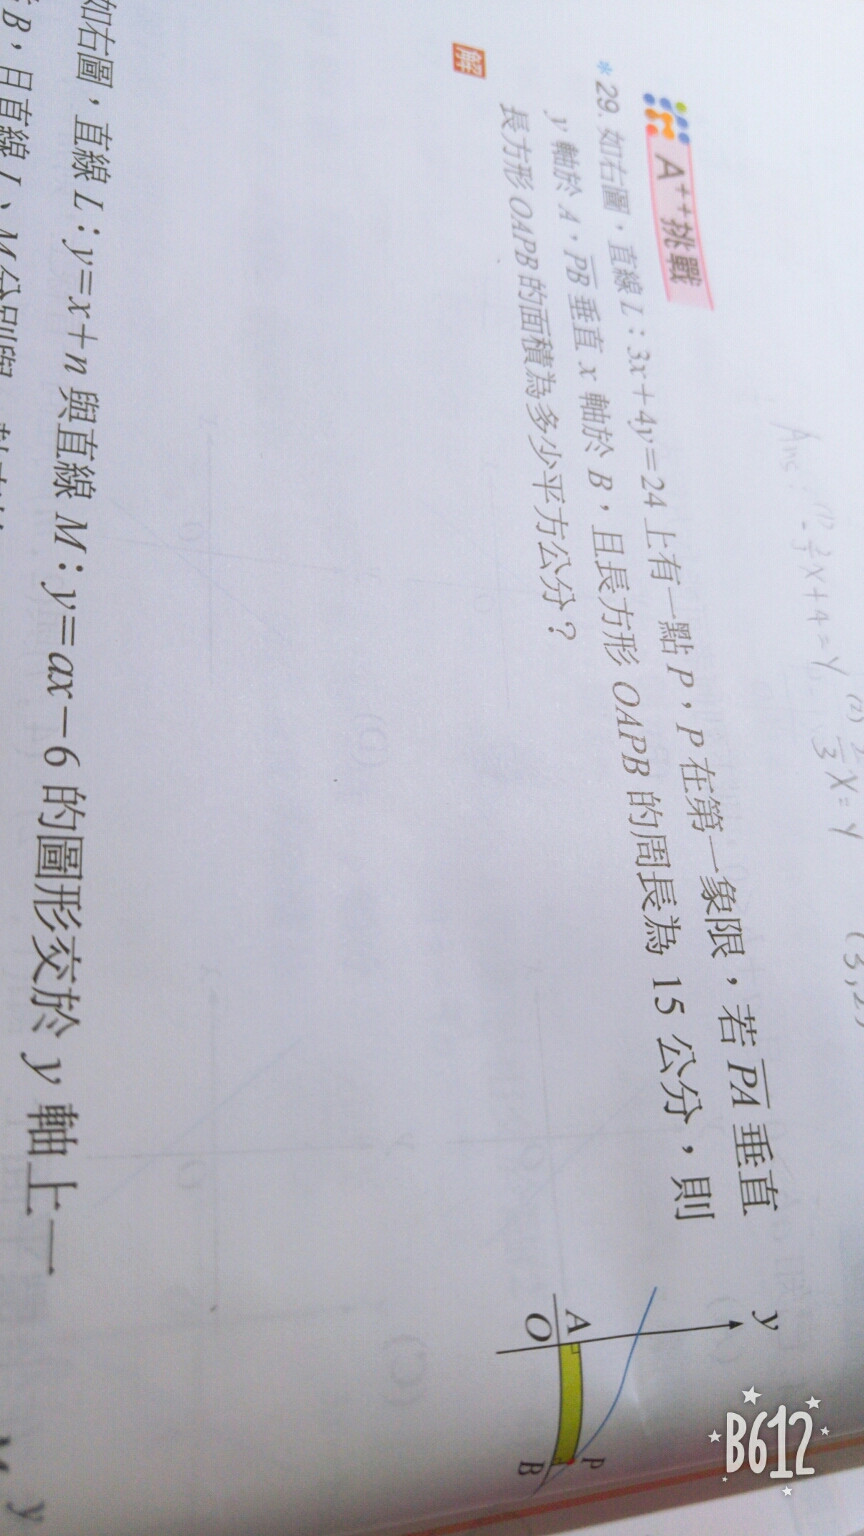 A⁺⁺挑戰
*29. 如右圖，直線 L：3x＋4y＝24 上有一點 P，P 在第一象限，若 PA 垂直
y 軸於 A，PB 垂直 x 軸於 B，且長方形 OAPB 的周長為 15 公分，則
長方形 OAPB 的面積為多少平方公分？
解
y
A
O
P
B
如右圖，直線 L：y＝x＋n 與直線 M：y＝ax－6 的圖形交於 y 軸上一
B，且直線 L、M 分別與
y
Ans：
B612